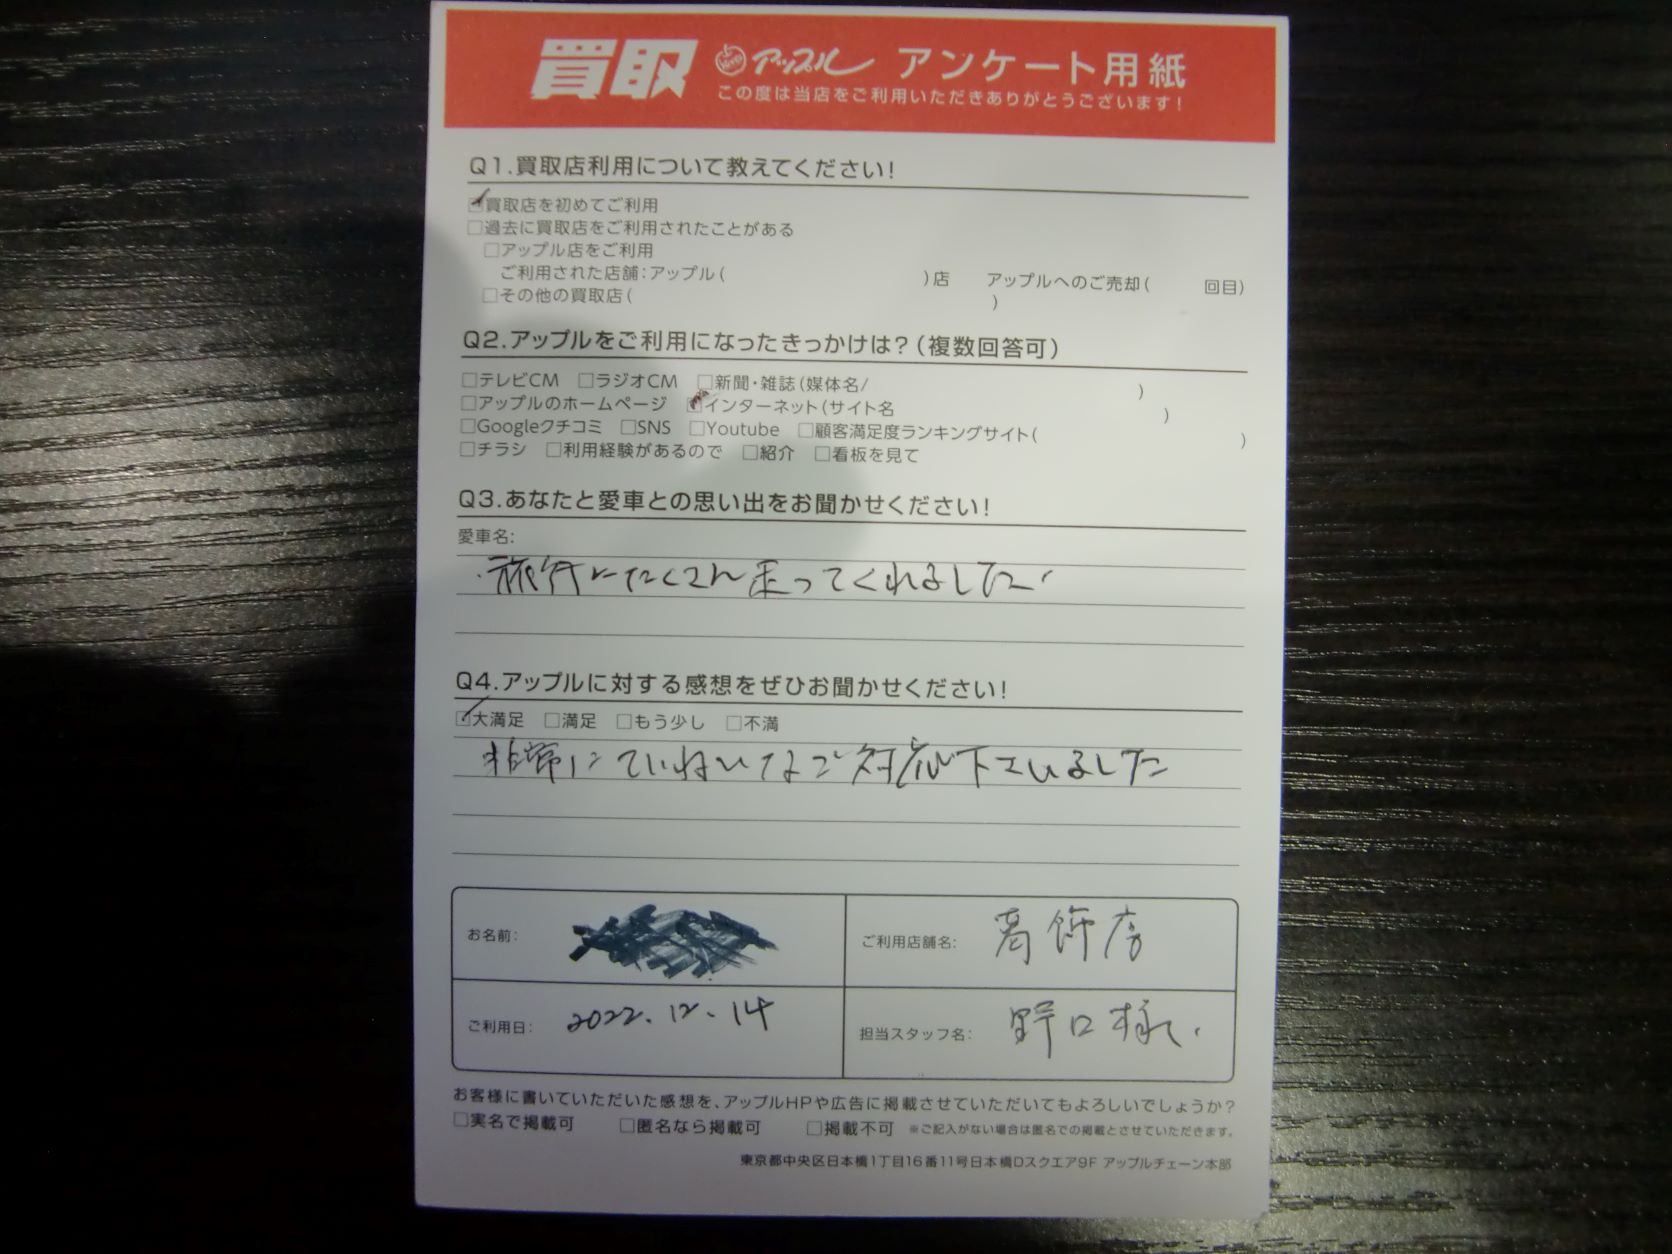 買取 アップル アンケート用紙
この度は当店をご利用いただきありがとうございます!
Q1.買取店利用について教えてください!
☑買取店を初めてご利用
□過去に買取店をご利用されたことがある
□アップル店をご利用
ご利用された店舗:アップル( )店 アップルへのご売却( 回目)
□その他の買取店( )
Q2.アップルをご利用になったきっかけは?(複数回答可)
□テレビCM □ラジオCM □新聞・雑誌(媒体名/ )
□アップルのホームページ ☑インターネット(サイト名 )
□Googleクチコミ □SNS □Youtube □顧客満足度ランキングサイト( )
□チラシ □利用経験があるので □紹介 □看板を見て
Q3.あなたと愛車との思い出をお聞かせください!
愛車名:
・旅行にたくさん走ってくれました。
Q4.アップルに対する感想をぜひお聞かせください!
☑大満足 □満足 □もう少し □不満
非常にていねいなご対応下さいました
お名前:
ご利用店舗名: 葛飾店
ご利用日: 2022.12.14
担当スタッフ名: 野口様。
お客様に書いていただいた感想を、アップルHPや広告に掲載させていただいてもよろしいでしょうか?
□実名で掲載可 □匿名なら掲載可 □掲載不可 ※ご記入がない場合は匿名での掲載とさせていただきます。
東京都中央区日本橋1丁目16番11号日本橋Dスクエア9F アップルチェーン本部